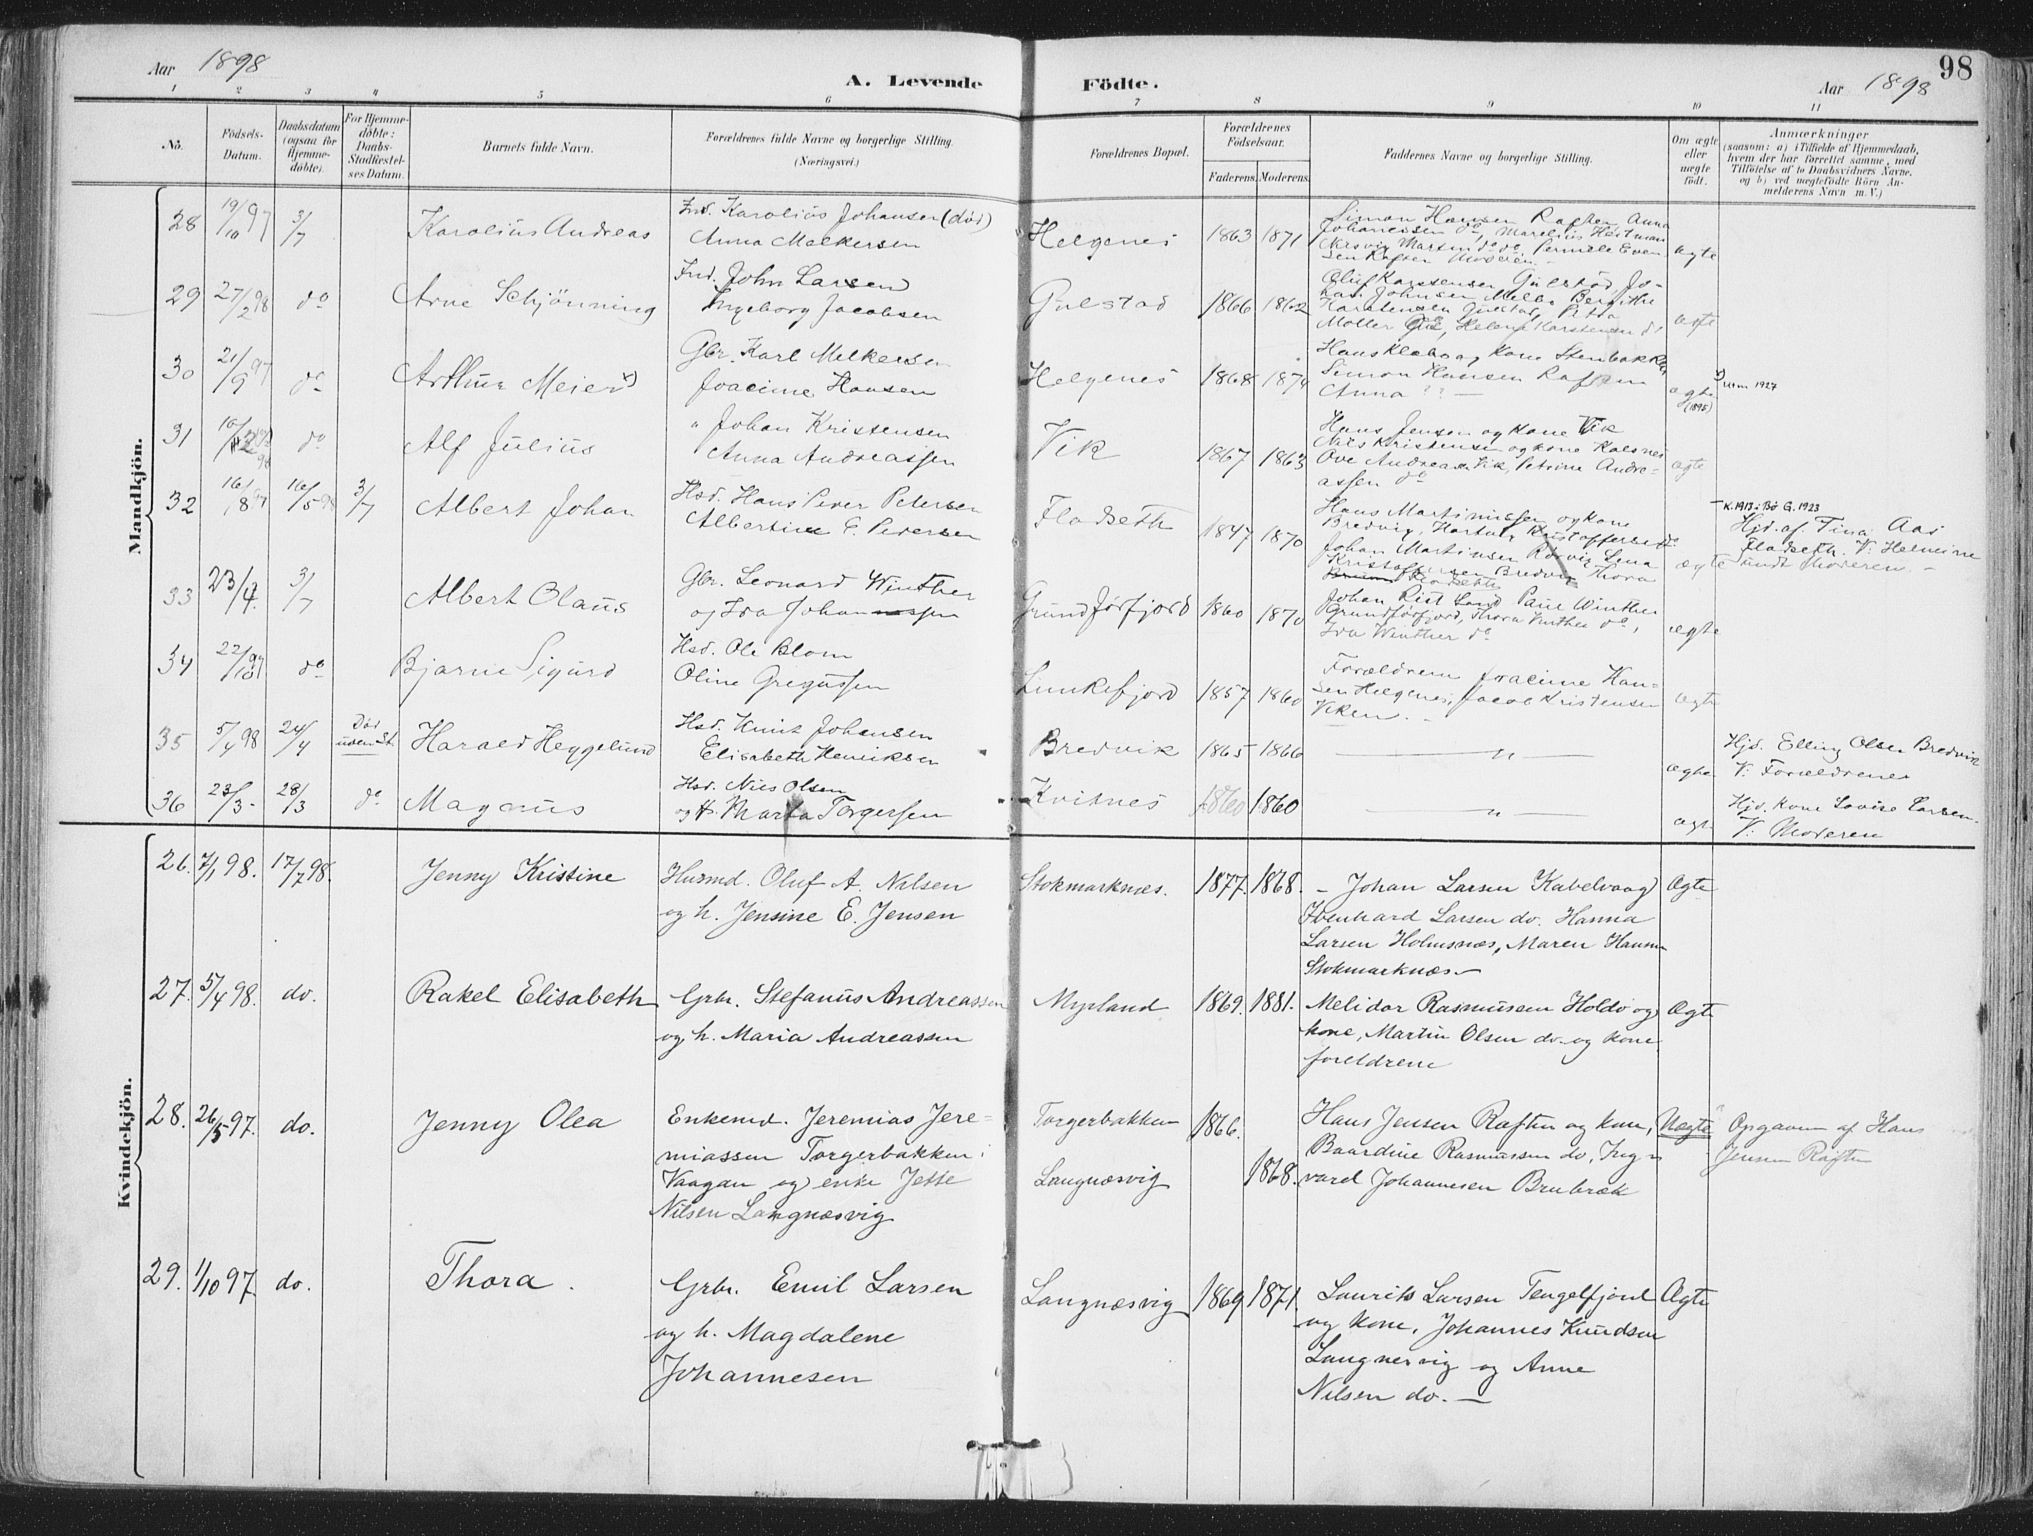 Aar 1898
A. Levende Födte.
Aar 1898
98
1 2 3 4 5 6 7 8 9 10 11
No.
Födsels-
Datum.
Daabsdatum
(ogsaa for
Hjemme-
döbte).
For Hjemme-
döbte:
Daabs-
Stadfæstel-
ses Datum.
Barnets fulde Navn.
Forældrenes fulde Navne og borgerlige Stilling.
(Næringsvei.)
Forældrenes Bopæl.
Forældrenes
Födselsaar.
Faderens. Moderens.
Faddernes Navne og borgerlige Stilling.
Om ægte
eller
uægte
födt.
Anmærkninger
(saasom: a) i Tilfælde af Hjemmedaab,
hvem der har forrettet samme, med
Tilföielse af to Daabsvidners Navne.
og b) ved uægtefödte Börn An-
melderens Navn m. V.)
Mandkjön.
28 19/10 97 3/7 Karolius Andreas
Ind. Karolius Johansen (död)
Anna Melkersen
Helgenes 1863 1871
Simon Hansen Raften Anna
Johannesen do, Marelius Hestman
Martin do do, Pernille Even
sen Raften Moderen.
ægte
29 27/2 98 do Arne Schjönning
Ind. John Larsen
Ingeborg Jacobsen
Gulstad 1866 1862
Oluf Karstensen Gulstad, Jo-
han Johnsen Melbo Bergithe
Karstensen Gulstad, Petra
Möller do, Helene Karstensen do
ægte
30 21/9 97 do Arthur Meier x)
Gbr. Karl Melkersen
Joacime Hansen
Helgenes 1868 1874
Hans Klabo og Kone Stenbakken
Simon Hansen Raften
Anna ?? —
ægte
(1895)
x) Urm 1927
31 do Alf Julius
" Johan Kristensen
Anna Andreassen
Vik 1867 1863
Hans Jensen og Kone Vik
Nils Kristensen og Kone Kalsnes
Ove Andreas Vik, Petrine Andre-
assen do
ægte
32 16/8 97 16/5 98 3/7 Albert Johan
Hsd. Hans Peder Petersen
Albertine E. Pedersen
Fladseth 1847 1870
Hans Martinussen og kone
Bredvig, Hartvig Kristoffersen do
Johan Martinsen Rösvig Lina
Kristoffersen Bredvig Thora
Fladseth
ægte
K. 1913: Bö G. 1923
Hjd. af. Tina Aas
Fladseth. V: Helmine
Sundt Moderen. —
33 23/4. 3/7 Albert Olaus
Gbr. Leonard Winther
og Ida Johannessen
Grundförfjord 1860 1870
Johan Rist Sand Paul Winther
Grundförfjord, Thora Vinther do,
Ida Winther do
ægte
34 22/10 97 do Bjarne Sigurd
Hsd. Ole Blom
Oline Gregussen
Lunkefjord 1857 1860
Forældrene Joacime Han-
sen Helgenes, Jacob Kristensen
Viken. —
ægte
35 5/4 98 24/4 Död
uden St. Harald Heggelund
Hsd. Knut Johansen
Elisabeth Henriksen
Bredvik 1865 1866
— " —
ægte
Hjd. Elling Olsen Bredvik
V: Forældrene
36 23/3 - 28/3 do Magnus
Hsd. Nils Olsen
og H. Marta Torgersen
Kvitnes 1860 1860
— " —
ægte
Hjd. Kone Lovise Larsen.
V: Moderen
Kvindekjön.
26. 7/1 98. 17/7 98. Jenny Kristine
Husmd. Oluf A. Nilsen
og h. Jensine E. Jensen
Stokmarknæs. 1877. 1868.
— Johan Larsen Kabelvaag
Evenhard Larsen do. Hanna
Larsen Holmsnæs, Maren Hansen
Stokmarknæs. —
Ægte
27. 5/4 98. do. Rakel Elisabeth
Grbr. Stefanus Andreassen
og h. Maria Andreassen
Myrland 1869. 1881.
Melidor Rasmussen Holdo og
kone, Martin Olsen do. og kone
foreldrene
Ægte
28. 26/5 97. do. Jenny Olea
Enkemd. Jeremias Jere-
miassen Torgerbakken,
Vaagan og enke Jette
Nilsen Langnæsvig
Torgerbakken 1866.
Langnæsvig 1868.
Hans Jensen Raften og kone,
Baardine Rasmussen do, Ing-
vard Johannesen Brubræk
Uægte
Opgaven af Hans
Jensen Raften
29. 1/10 97. do. Thora.
Grbr. Emil Larsen
og h. Magdalene
Johannesen
Langnæsvig 1869 1871.
Laurits Larsen Tengelfjord
og kone, Johannes Knudsen
Langnesvig og Anne
Nilsen do. —
Ægte